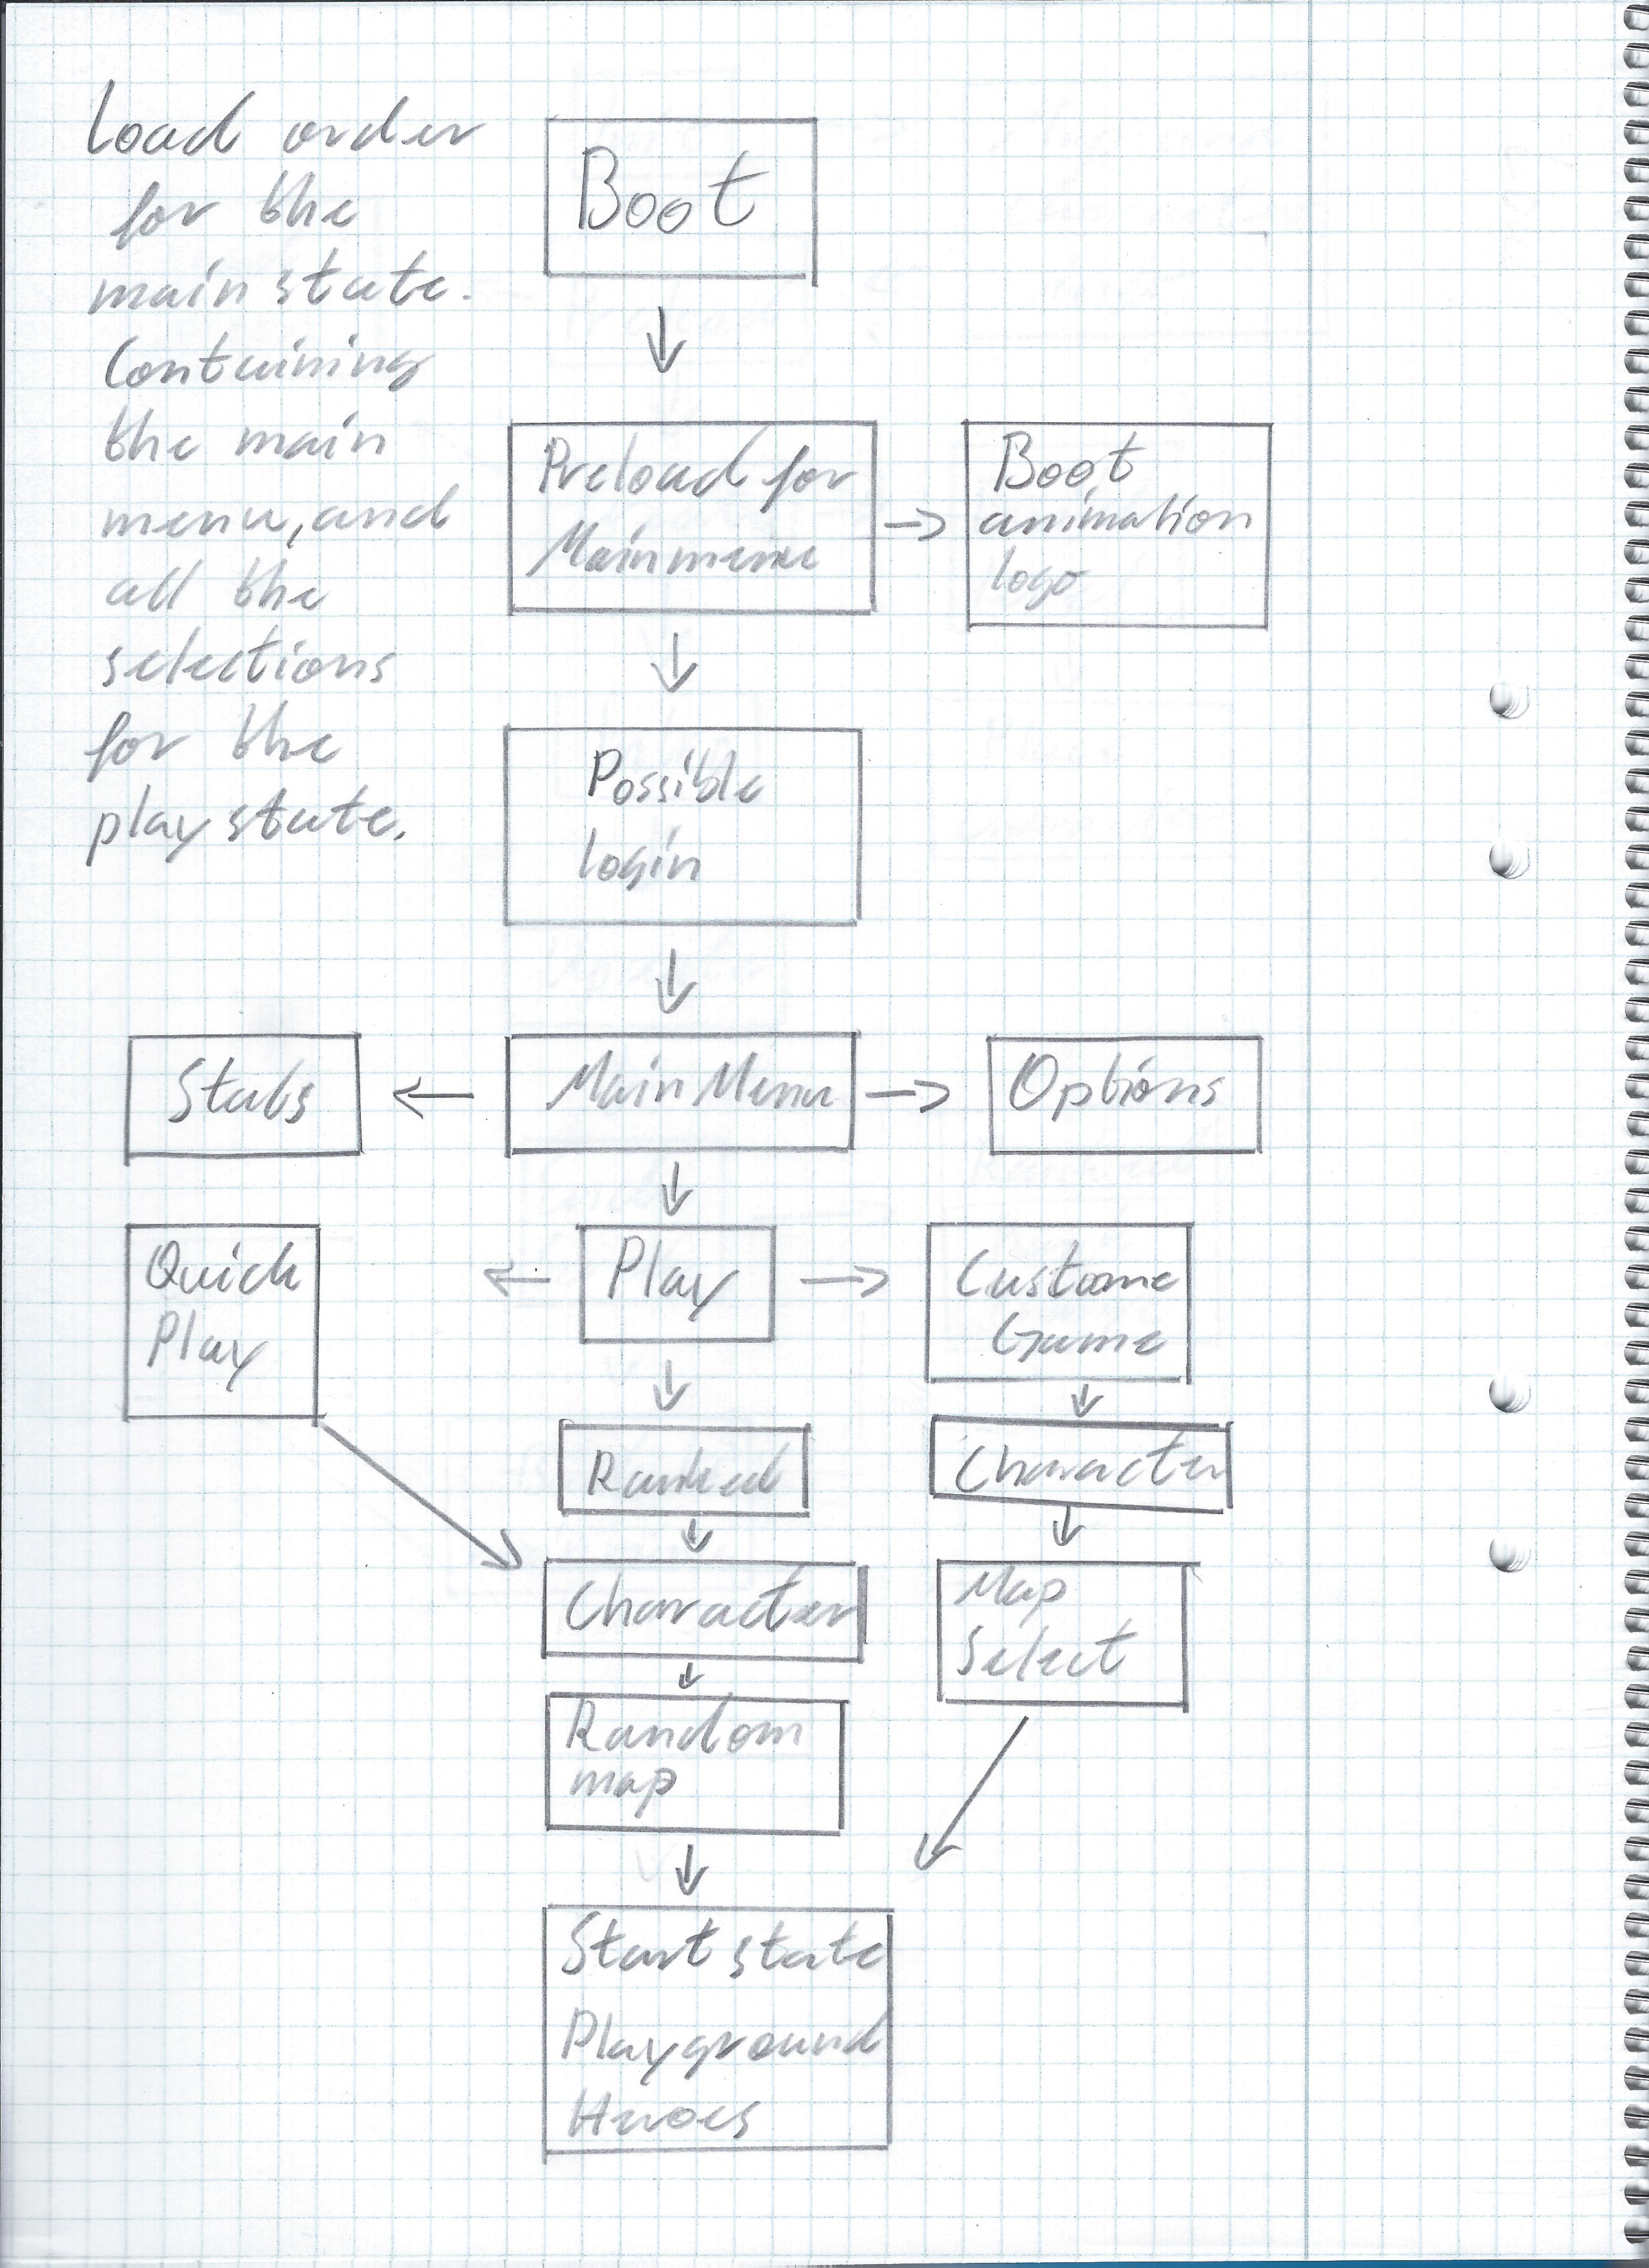 Load order
for the
main state.
Containing
the main
menu, and
all the
selections
for the
play state.
Boot
Preload for
Main menu
Boot
animation
logo
Possible
login
Stats
Main Menu
Options
Quick
Play
Play
Custome
Game
Ranked
Character
Character
Map
Select
Random
map
Start state
Playground
Heroes